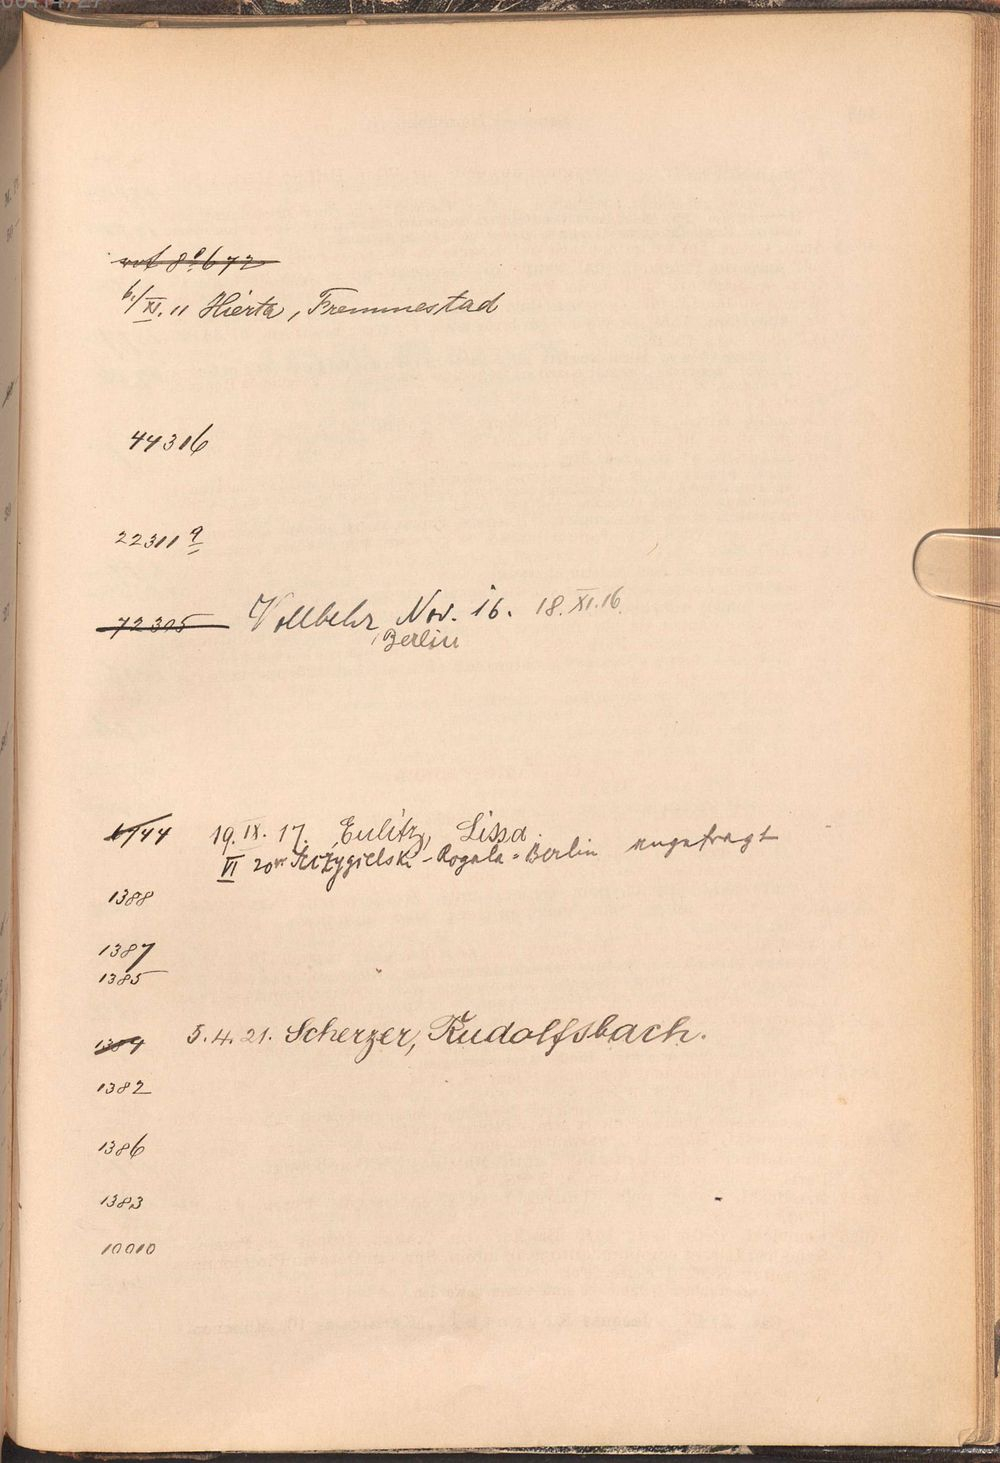 rot 8° 672
6./XI. 11 Hierta, Fremmestad
44316
22311 a
72305 Vollbehr, Nov. 16. 18.XI.16.
Berlin
6144 19.IX.17. Eulitz, Lissa.
VI 20 Szczygielski-Rogala=Berlin angefragt
1388
1387
1385
1384 5.4.21. Scherzer, Rudolfsbach.
1382
1386
1383
10010